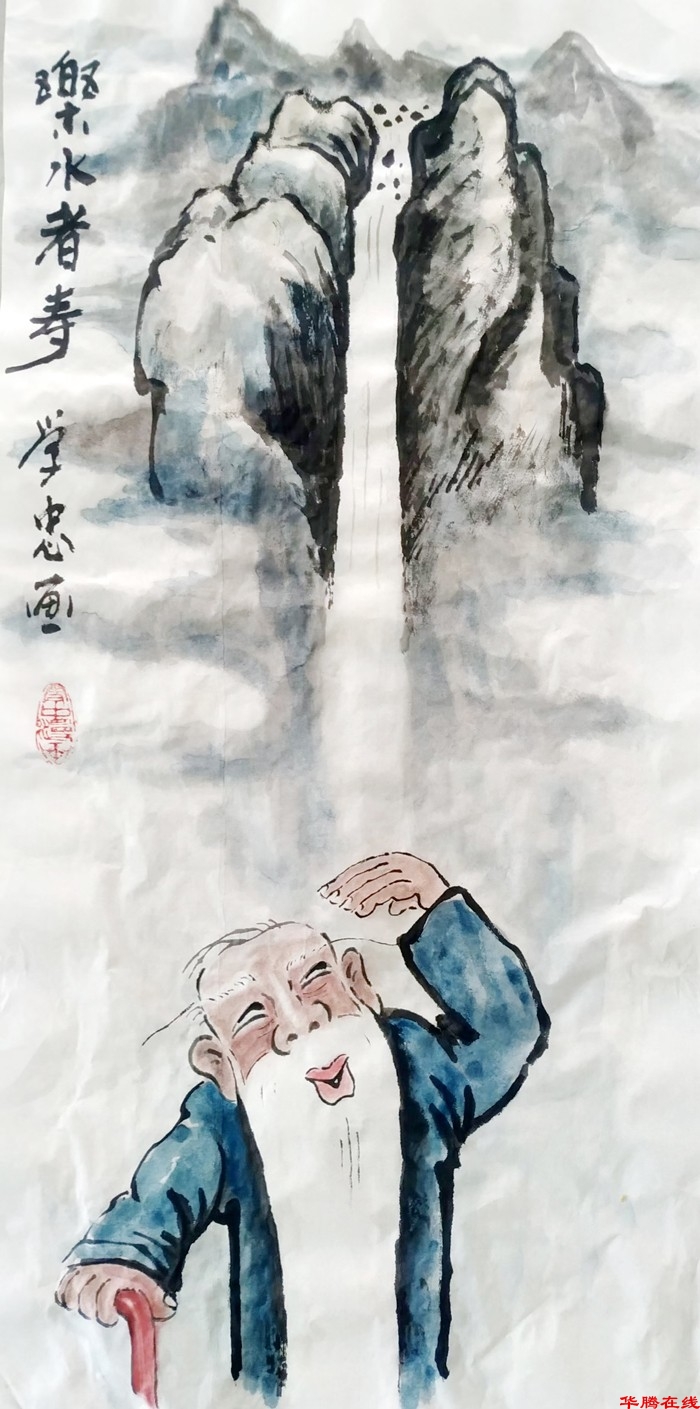 樂水者寿
学忠画
华腾在线